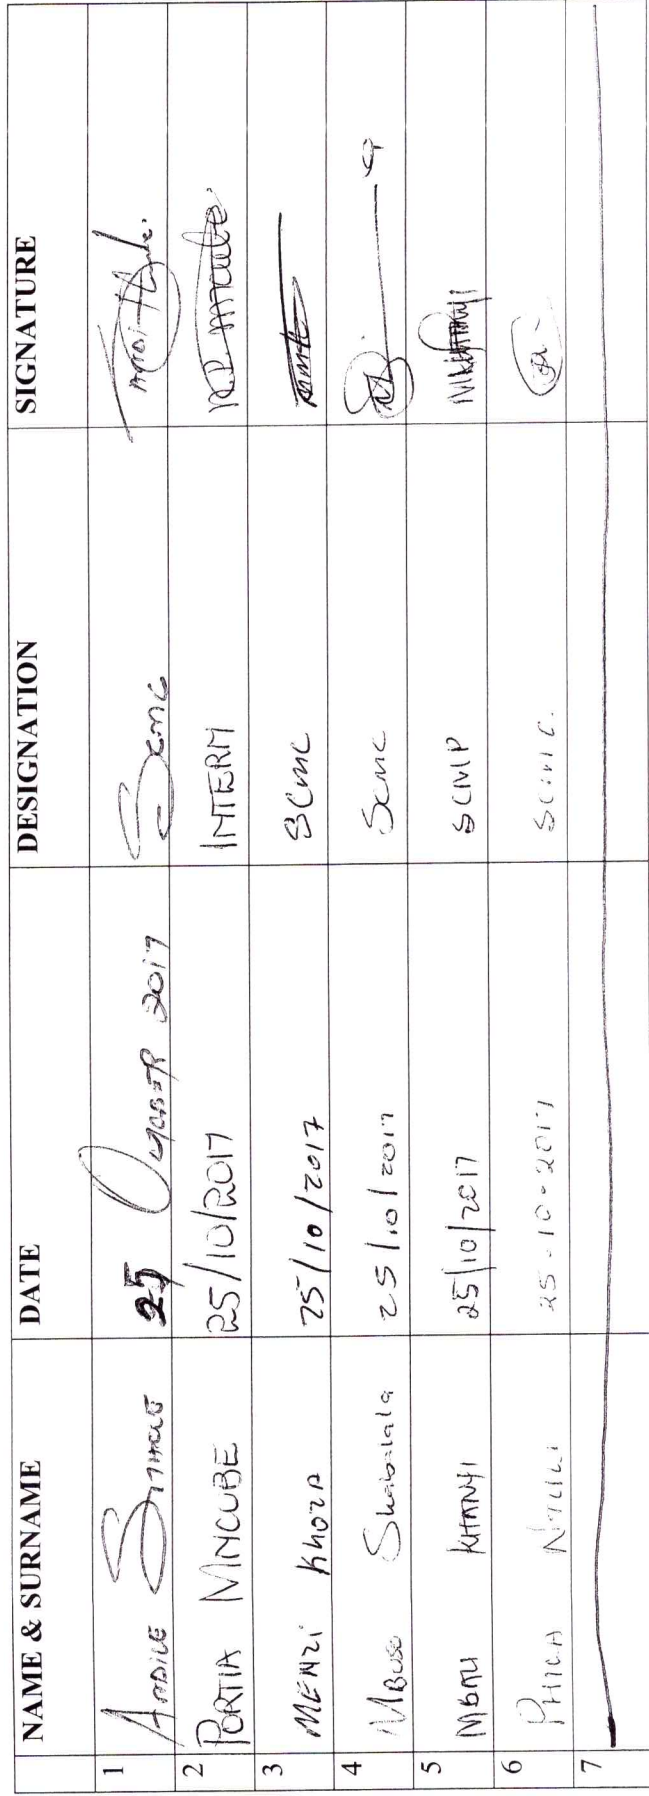 NAME & SURNAME DATE DESIGNATION SIGNATURE
1 ANDILE 25 OCTOBER 2017 SCMC
2 PORTIA MNCUBE 25/10/2017 INTERM P.P. Mncube
3 MENZI KHOZA 25/10/2017 SCMC
4 MBUSO Shabalala 25/10/2017 SCMC
5 KHANYI 25/10/2017 SCMP
6 PHILA 25-10-2017 SCMC.
7